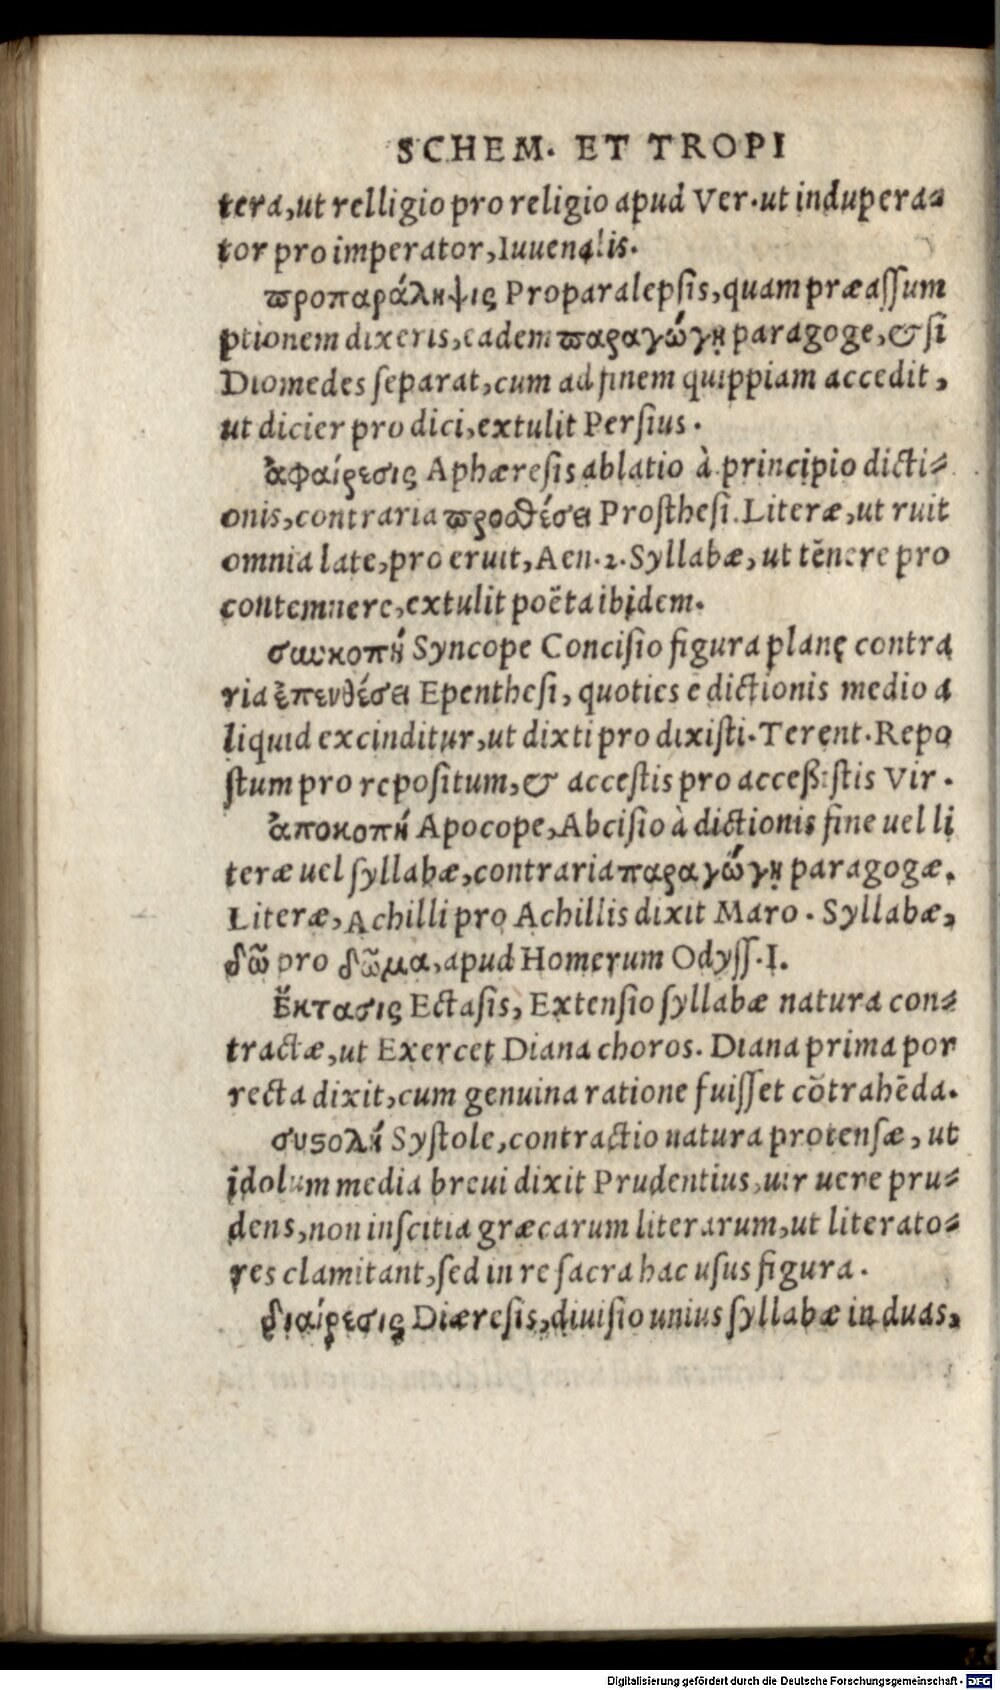 SCHEM. ET TROPI
tera,ut relligio pro religio apud Ver.ut indupera-
tor pro imperator,Iuuenalis.
προπαράληψις Proparalepsis,quam præassum
ptionem dixeris,eadem παραγώγη paragoge,& si
Diomedes separat,cum ad finem quippiam accedit,
ut dicier pro dici,extulit Persius.
ἀφαίρεσις Aphæresis ablatio à principio dicti-
onis,contraria προσθέσει Prosthesi.Literæ,ut ruit
omnia late,pro eruit,Aen.2.Syllabæ,ut tēnere pro
contemnere,extulit poëta ibidem.
συνκοπή Syncope Concisio figura planę contra
ria ἐπενθέσει Epenthesi, quoties e dictionis medio a
liquid excinditur,ut dixti pro dixisti.Terent.Repo
stum pro repositum,& accestis pro acceßistis Vir.
ἀποκοπή Apocope,Abcisio à dictionis fine uel li
teræ uel syllabæ,contraria παραγώγη paragogæ.
Literæ,Achilli pro Achillis dixit Maro. Syllabæ,
δῶ pro δῶμα,apud Homerum Odyss.I.
ἔκτασις Ectasis, Extensio syllabæ natura con-
tractæ,ut Exercet Diana choros. Diana prima por
recta dixit,cum genuina ratione fuisset cōtrahēda.
συϛολή Systole,contractio natura protensæ, ut
idolum media breui dixit Prudentius,uir uere pru-
dens,non inscitia græcarum literarum,ut literato-
res clamitant,sed in re sacra hac usus figura.
διαίρεσις Diæresis,diuisio unius syllabæ in duas,
Digitalisierung gefördert durch die Deutsche Forschungsgemeinschaft - DFG